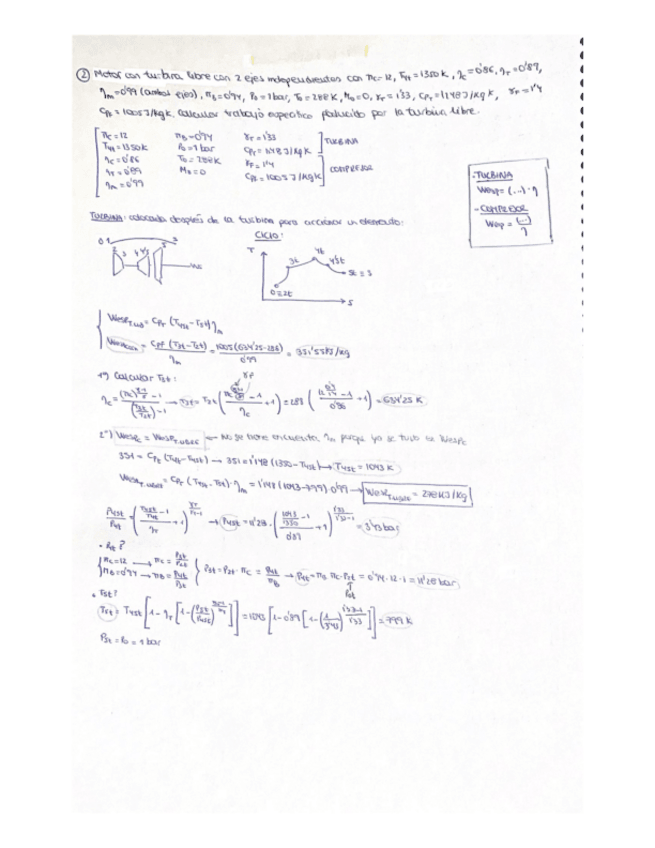 ② Motor con turbina libre con 2 ejes independientes con πc=12, T4t=1350K, ηc=0'86, ηT=0'89,
ηm=0'99 (ambos ejes), πB=0'94, P0=1bar, T0=288K, M0=0, γT=1'33, CPT=1148J/kgK, γF=1'4
CPF=1005J/kgK. Calcular trabajo específico producido por la turbina libre.
πc=12 πB=0'94 γT=1'33
T4t=1350K P0=1bar CPT=1148J/kgK TURBINA
ηc=0'86 T0=288K γF=1'4
ηT=0'89 M0=0 CPF=1005J/kgK COMPRESOR
ηm=0'99
- TURBINA
Wesp=(...)·η
- COMPRESOR
Wesp=(...)/η
TURBINA: colocada después de la turbina para accionar un elemento:
CICLO:
0 1 3 4 4's 5
T 3t 4t 4'5t 5t=5
0=2t S
WespTURB = CPT (T4t-T5t)ηm
= CPF (T3t-T2t)/ηm = 1005(634'25-288)/0'99 = 351'55KJ/kg
1º) Calcular T3t:
ηc = → T3t = T2t = 288 ( +1) = 634'25 K
2º) Wespc = Wesp ← No se tiene en cuenta ηm porque ya se tuvo en Wespc
351 = CPT (T4t-T45t) → 351 = 1'148 (1350-T45t) → T45t = 1043 K
WespT.LIBRE = CPT (T45t-T5t)·ηm = 1'148 (1043-799)·0'99 → WespT.LIBRE = 278KJ/kg
P45t/P4t = → P45t = 11'28· = 3'43 bar
· P4t?
πc=12 → πc = P3t/P2t
πB=0'94 → πB = P4t/P3t
P3t = P2t·πc = P4t/πB → P4t = πB·πc·P2t = 0'94·12·1 = 11'28 bar
P0t
· T5t?
T5t = T45t [1-ηT[1-(P5t/P45t)]] = 1043 [1-0'89[1-(1/3'43)^(1'33-1/1'33)]] = 799 K
P5t = P0 = 1 bar